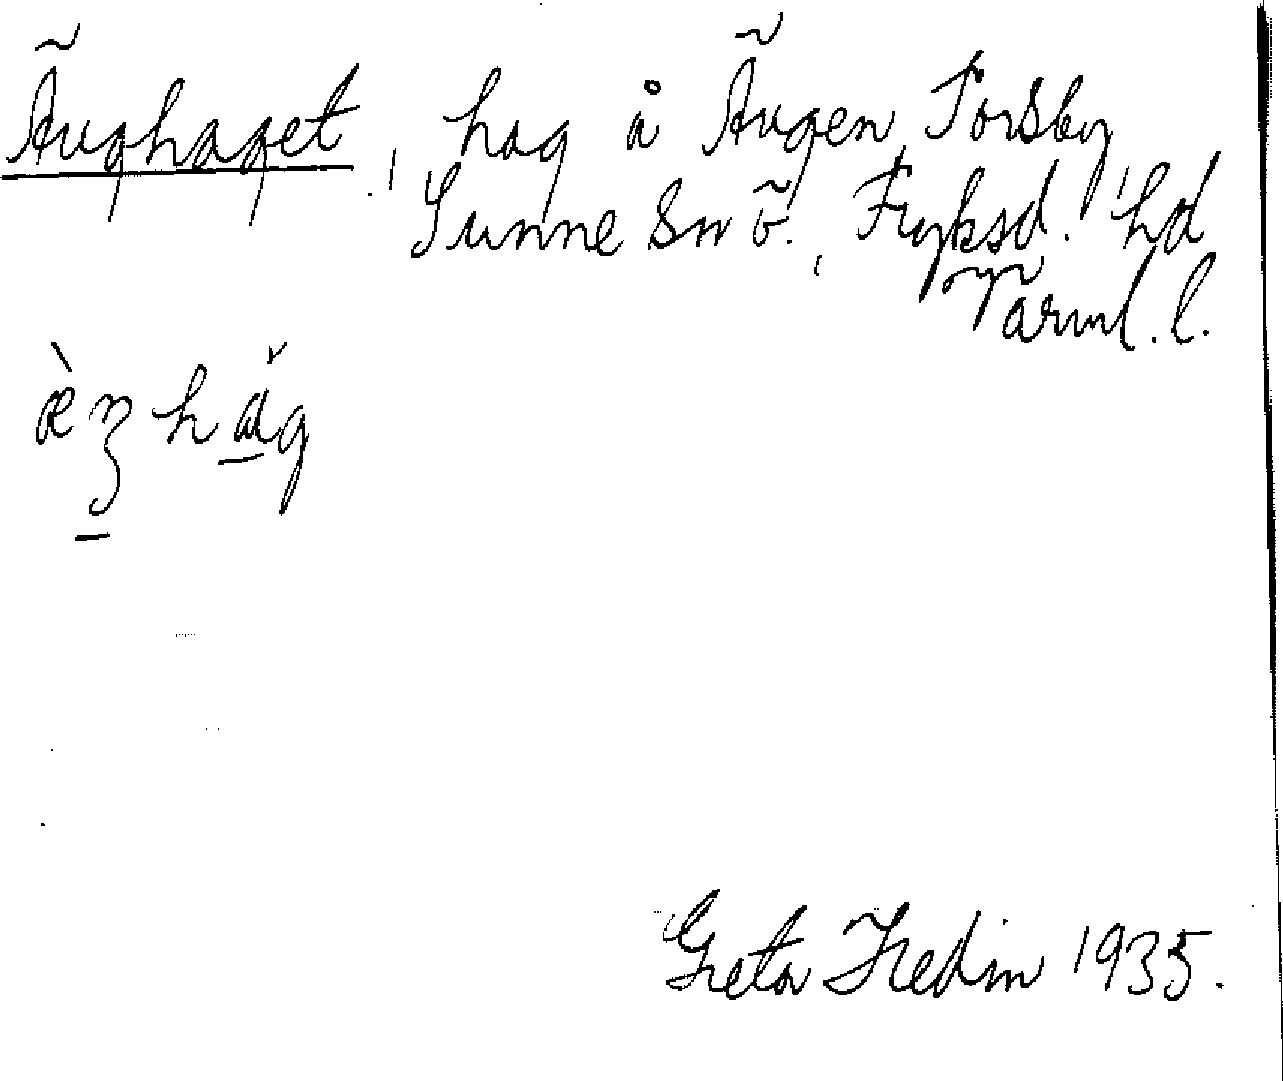 Änghaget, hag å Ängen, Torsby
Sunne sn ö., Fryksd. hd
Värml. l.
Greta Hedin 1935.